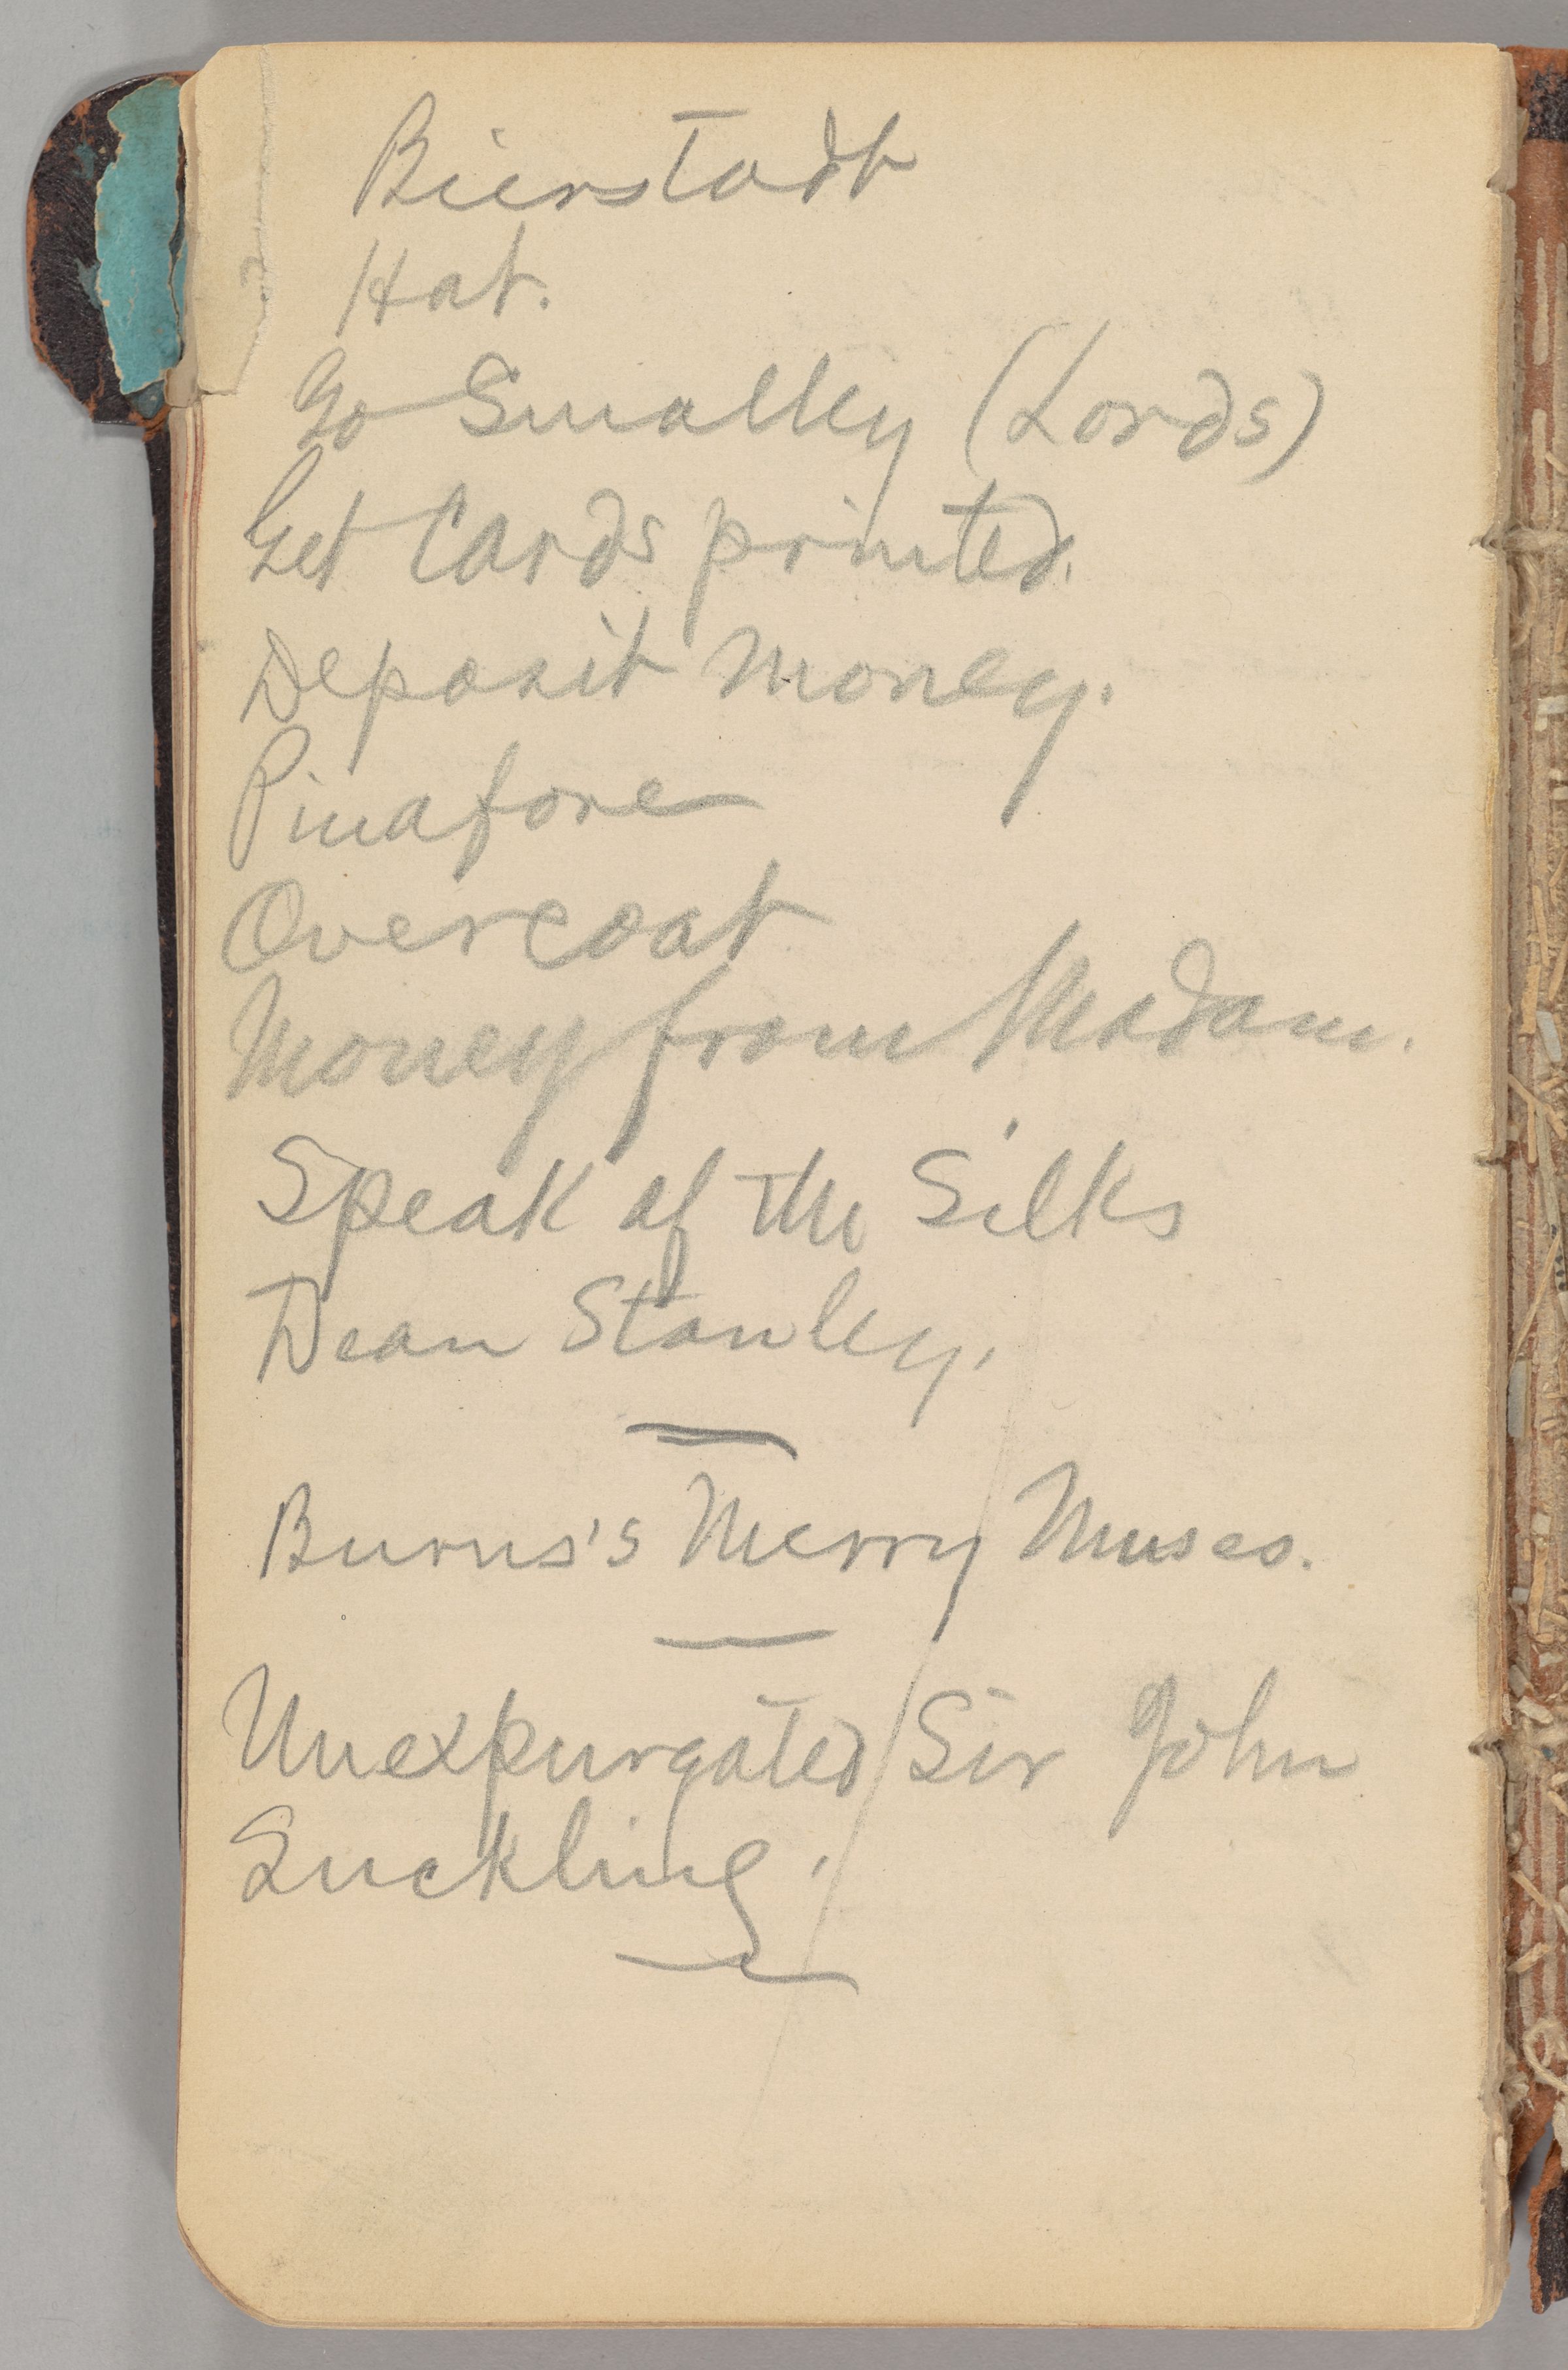 Bierstadt
Hat.
Go Smalley (Lords)
Get Cards printed.
Deposit money.
Pinafore
Overcoat
Money from Madam.
Speak of the Silks
Dean Stanley.
Burns's Merry Muses.
Unexpurgated Sir John
Suckling.